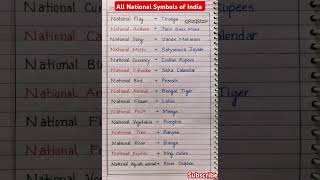 All National Symbols of India
National Flag → Tiranga
National Anthem → Jana Gana Mana
National Song → Vande Mataram
National Motto → Satyameva Jayate
National Currency → Indian Rupees
National Calendar → Saka Calendar
National Bird → Peacock
National Animal → Bengal Tiger
National Flower → Lotus
National Fruit → Mango
National Vegetable → Pumpkin
National Tree → Banyan
National River → Ganga
National Reptile → King cobra
National Aquatic animal → River Dolphin
Subscribe